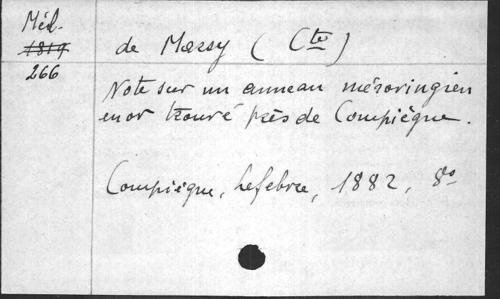 Méd.
1819
266
de Marsy (Cte)
Note sur un anneau mérovingien
en or trouvé près de Compiègne.
Compiègne, Lefebvre, 1882, 8o